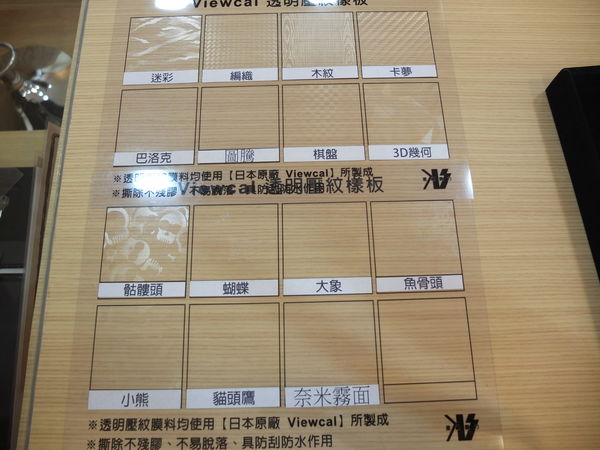 Viewcal 透明壓紋樣板
迷彩 編織 木紋 卡夢
巴洛克 圖騰 棋盤 3D幾何
※透明壓紋膜料均使用【日本原廠 Viewcal】所製成
※撕除不殘膠、不易脫落、具防刮防水作用
Viewcal 透明壓紋樣板
骷髏頭 蝴蝶 大象 魚骨頭
小熊 貓頭鷹 奈米霧面
※透明壓紋膜料均使用【日本原廠 Viewcal】所製成
※撕除不殘膠、不易脫落、具防刮防水作用